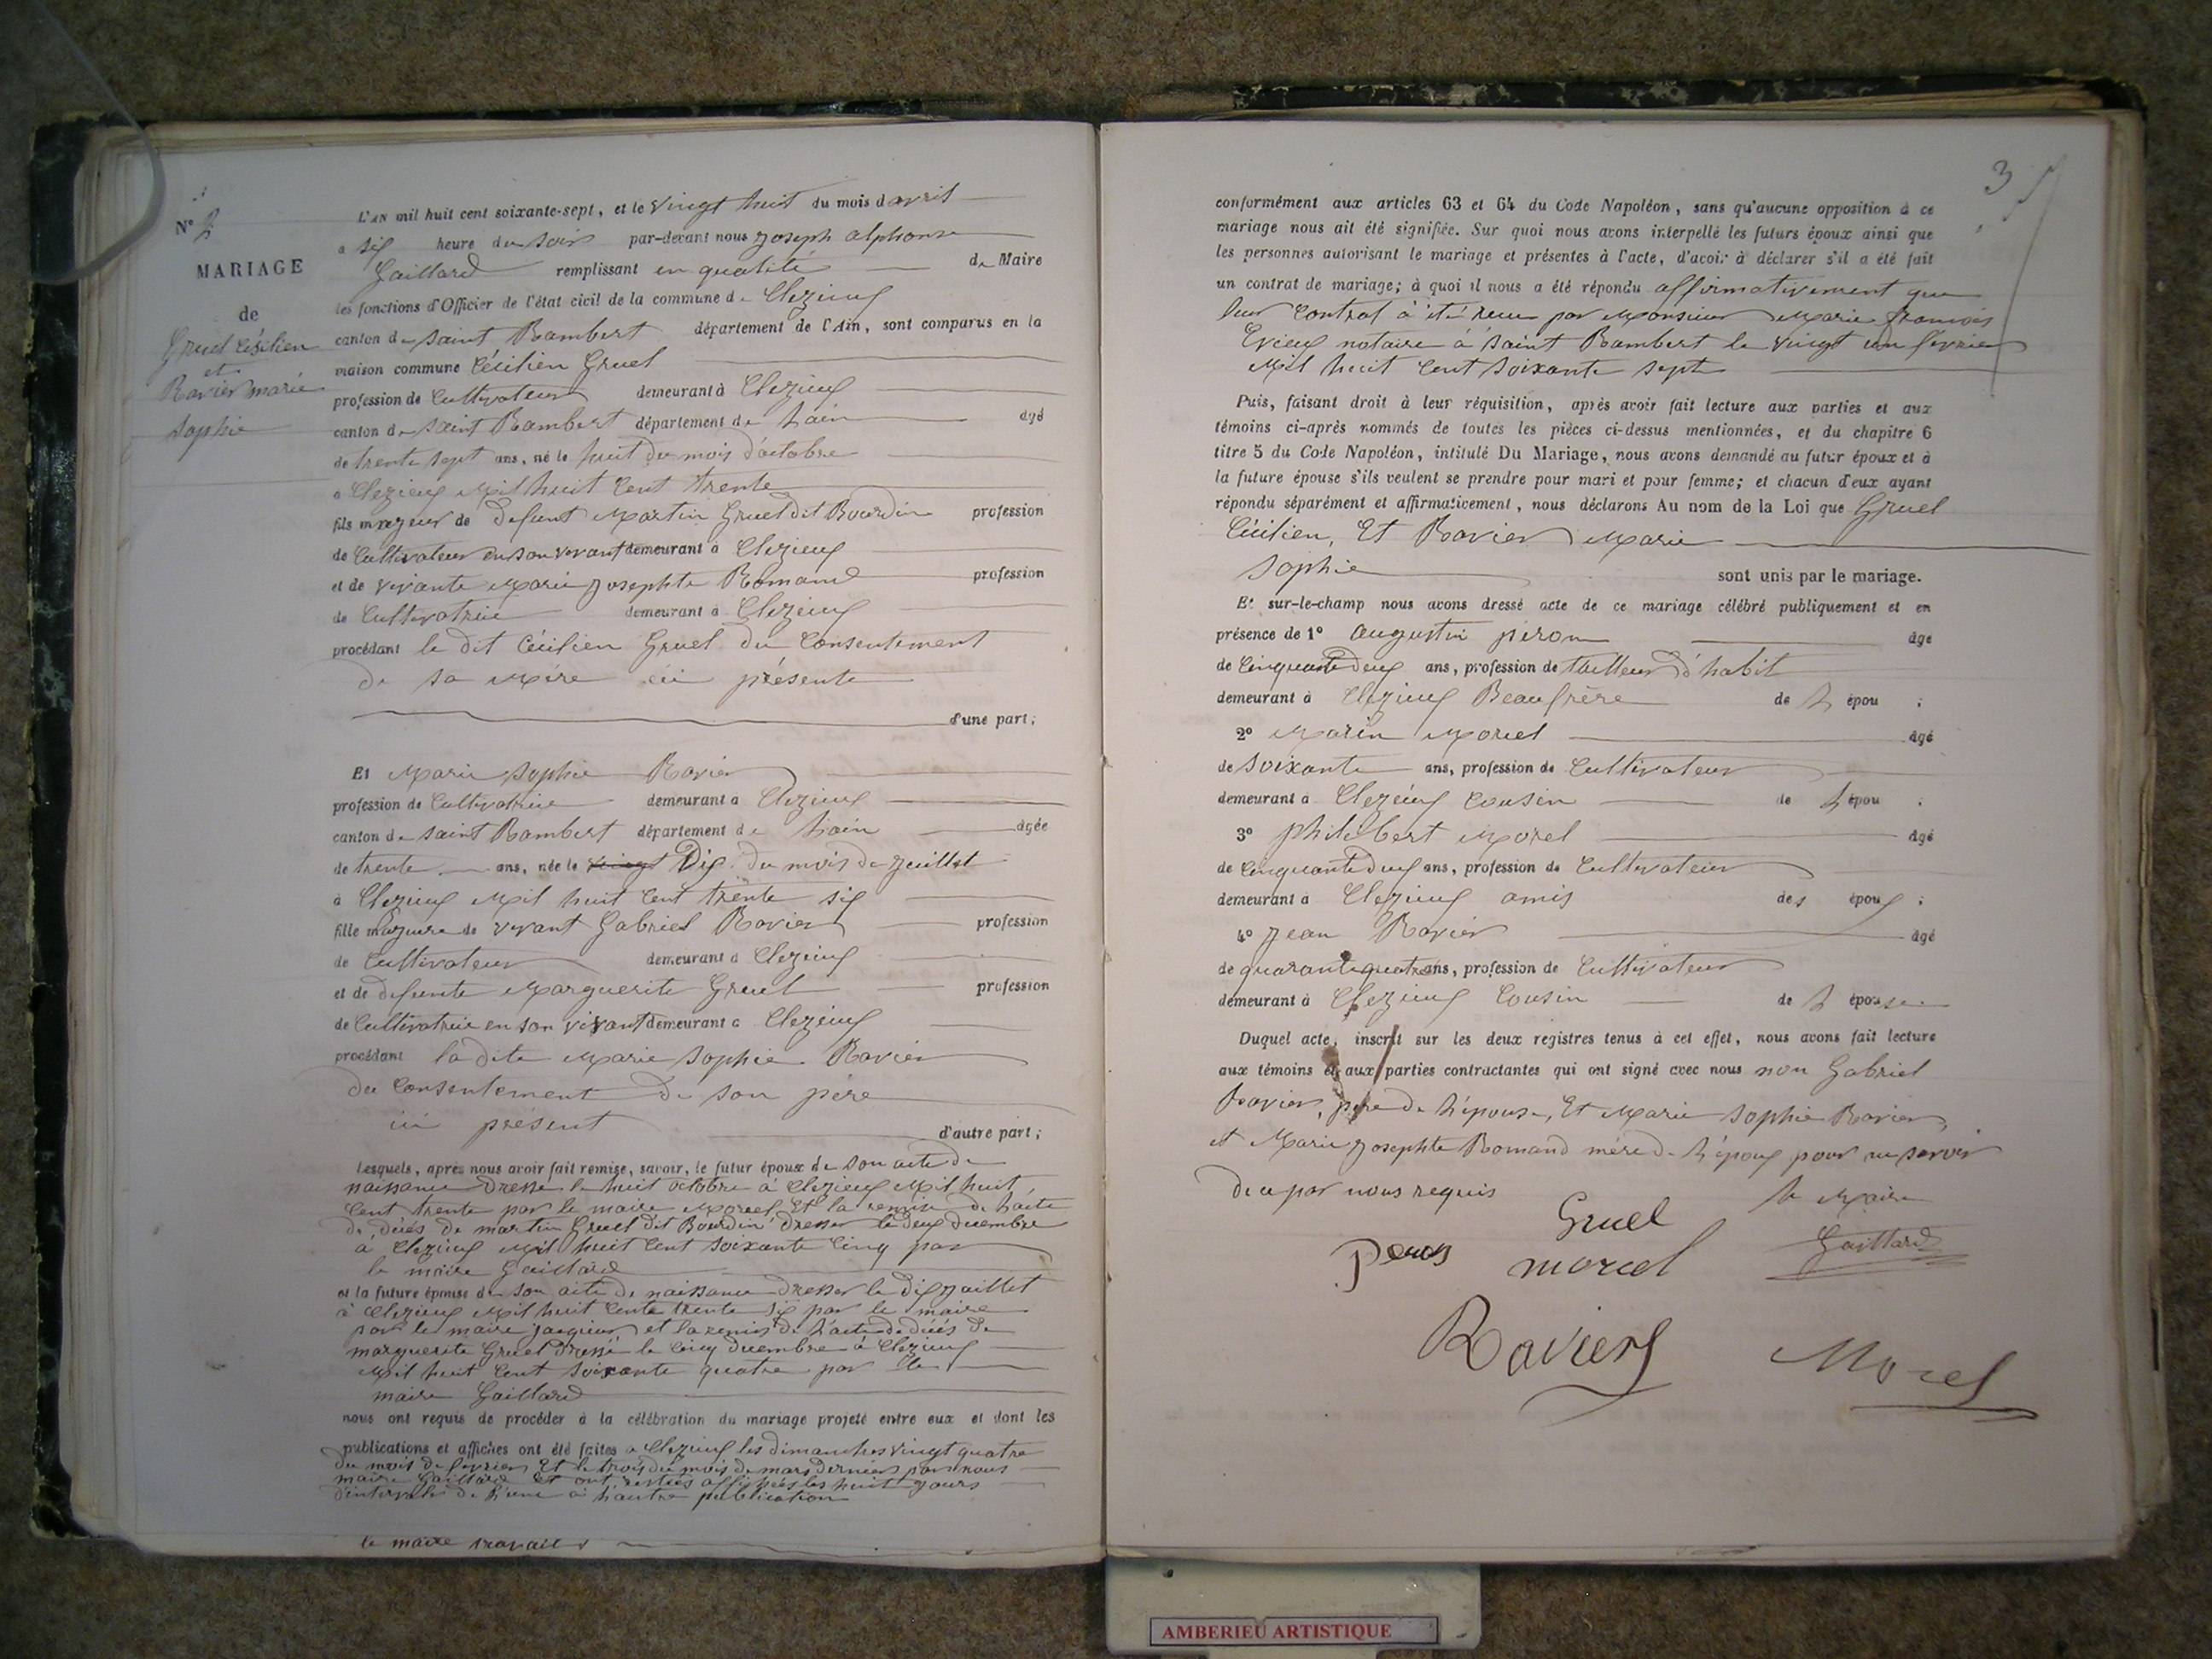 N° 2
MARIAGE
de
Gruel Cécilien
et
Ravier marie
Sophie
L'AN mil huit cent soixante-sept, et le vingt huit du mois d avril
a six heure du soir par-devant nous joseph alphonse
Gaillard remplissant en qualité de Maire
les fonctions d'Officier de l'état civil de la commune de Clezieux
canton de saint Rambert département de l'Ain, sont comparus en la
maison commune Cécilien Gruel
profession de Cultivateur demeurant à Clezieux
canton de saint Rambert département de Lain agé
de trente sept ans, né le huit du mois d'octobre
a Clezieux Mil huit Cent trente
fils majeur de defunt Martin Gruel dit Bourdin profession
de Cultivateur en son vivant demeurant à Clezieux
et de vivante Marie josephte Romand profession
de Cultivatrice demeurant à Clezieux
procédant le dit Cécilien Gruel du Consentement
de sa Mère ici présente
d'une part;
Et Marie Sophie Ravier
profession de Cultivatrice demeurant a Clezieux
canton de saint Rambert département de Lain agée
de trente ans, née le vingt Dix du mois de juillet
à Clezieux Mil huit Cent trente six
fille majeure de vivant Gabriel Ravier profession
de Cultivateur demeurant à Clezieux
et de defunte Marguerite Gruel profession
de Cultivatrice en son vivant demeurant a Clezieux
procédant la dite Marie Sophie Ravier
du Consentement de son père
ici présent d'autre part;
Lesquels, après nous avoir fait remise, savoir, le futur époux de son acte de
naissance Dressé le huit octobre à Clezieux Mil huit
Cent trente par le maire Morel Et la remise de L'acte
de décés de martin Gruel dit Bourdin dresser le deux decembre
à Clezieux Mil huit Cent soixante Cinq par
le maire Gaillard
et la future épouse de son acte de naissance dresser le dix juillet
à Clezieux Mil huit Cente trente six par le maire
par le maire et la remis de L'acte de décés de
marguerite Gruel Dressé le Cinq decembre à Clezieux
Mil huit Cent soixante quatre par le
maire Gaillard
nous ont requis de procéder à la célébration du mariage projeté entre eux et dont les
publications et affiches ont été faites a Clezieux les dimanches vingt quatre
du mois de fevrier Et le trois du mois de mars dernier par nous
maire Gaillard Et ont restées affichées les huit jours
d'intervale de L'une à L'autre publication
le maire
3
conformément aux articles 63 et 64 du Code Napoléon, sans qu'aucune opposition à ce
mariage nous ait été signifiée. Sur quoi nous avons interpellé les futurs époux ainsi que
les personnes autorisant le mariage et présentes à l'acte, d'avoir à déclarer s'il a été fait
un contrat de mariage; à quoi il nous a été répondu affirmativement que
leur Contrat à été reçu par Monsieur Marie françois
notaire à saint Rambert le vingt un fevrier
Mil huit Cent Soixante sept
Puis, faisant droit à leur réquisition, après avoir fait lecture aux parties et aux
témoins ci-après nommés de toutes les pièces ci-dessus mentionnées, et du chapitre 6
titre 5 du Code Napoléon, intitulé Du Mariage, nous avons demandé au futur époux et à
la future épouse s'ils veulent se prendre pour mari et pour femme; et chacun d'eux ayant
répondu séparément et affirmativement, nous déclarons Au nom de la Loi que Gruel
Cécilien, Et Ravier Marie
Sophie sont unis par le mariage.
Et sur-le-champ nous avons dressé acte de ce mariage célébré publiquement et en
présence de 1° augustin peron âge
de Cinquante deux ans, profession de tailleur d'habit
demeurant à Clezieux Beaufrère de L épou ;
2° Marin Morel âgé
de Soixante ans, profession de Cultivateur
demeurant a Clezieux Cousin de L épou ;
3° philibert Morel âgé
de Cinquante deux ans, profession de Cultivateur
demeurant a Clezieux amis des époux ;
4° jean Ravier âgé
de quarante quatre ans, profession de Cultivateur
demeurant à Clezieux Cousin de L épouse
Duquel acte, inscrit sur les deux registres tenus à cet effet, nous avons fait lecture
aux témoins et aux parties contractantes qui ont signé avec nous non Gabriel
Ravier, père de L'épouse, Et Marie Sophie Ravier
et Marie josephte Romand mère de L'époux pour ne savoir
de ce par nous requis le Maire
Gruel
Gaillard
morel
Ravier
Morel
AMBERIEU ARTISTIQUE